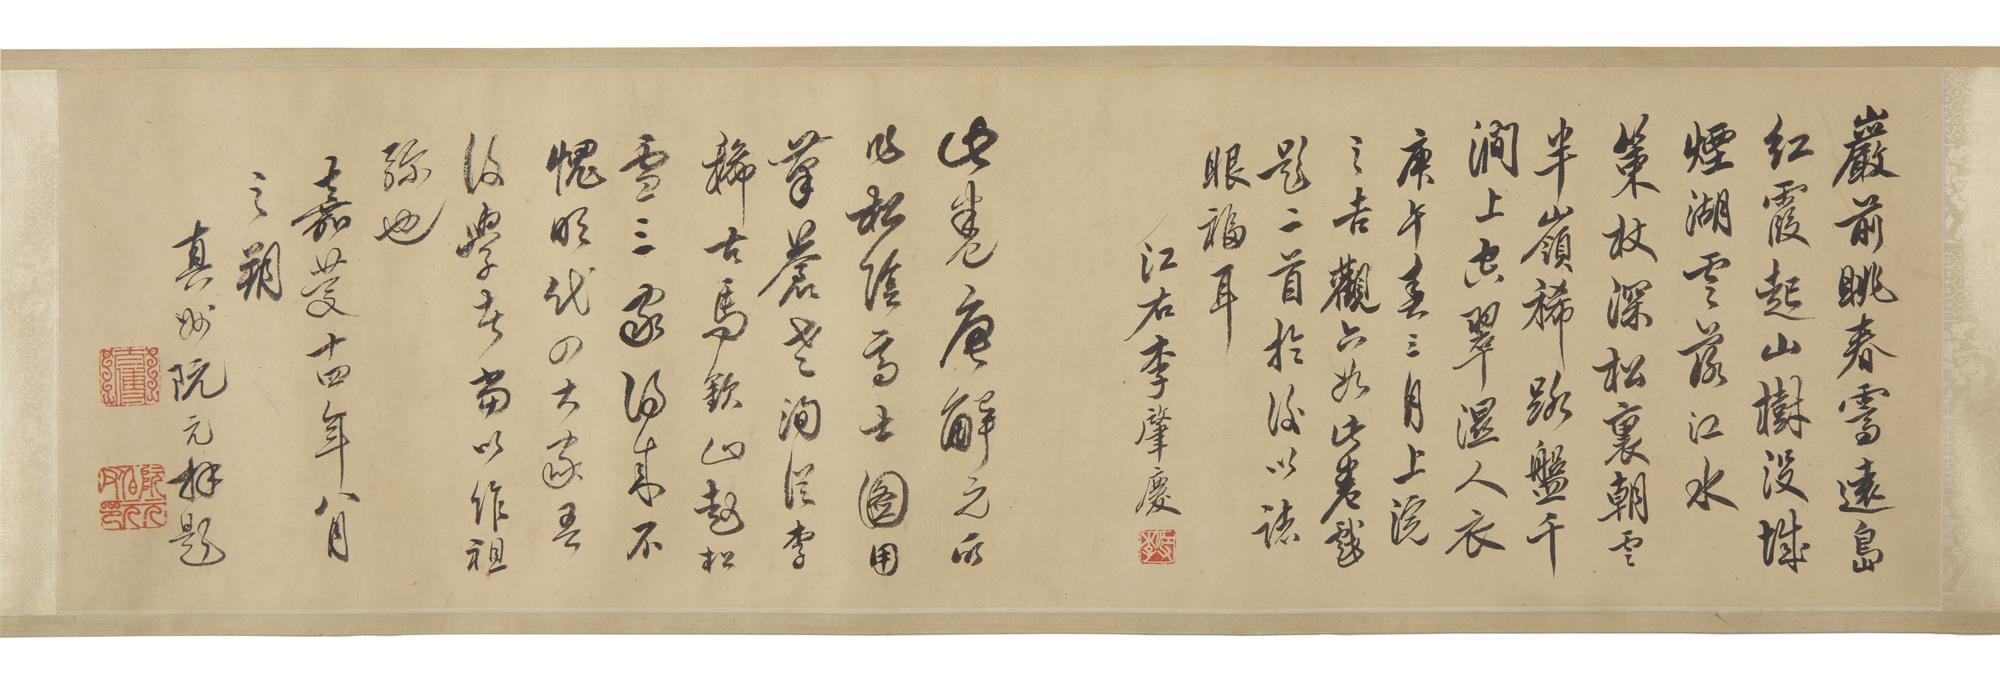 巖前眺春霽遠島
紅霞起山樹沒城
煙湖雲落江水
策杖深松裏朝雲
半嶺稀路盤千
澗上空翠濕人衣
庚午春三月上浣
之吉觀六如此卷戲
題二首於後以誌
眼福耳
江右李肇慶
此卷唐解元所
作松陰高士圖用
筆蒼老洵從李
稀古馬欽山趙松
雪三家得來不
愧明代四大家吾
後學者當以作祖
孫也
嘉慶十四年八月
之朔
真州阮元拜題